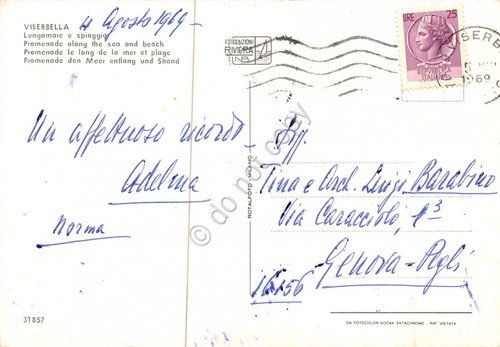 VISERBELLA
4 Agosto 1969-
Lungomare e spiaggia
Promenade along the sea and beach
Promenade le long de la mer et plage
Promenade den Meer entlang und Strand
Un affettuoso ricordo
Adelma
Norma
31857
ROTALFOTO - MILANO
RIVIERA
LIRE 25
REPUBBLICA
ITALIANA
VISERB
1969
Aff.
Tina e Arch. Luigi Barabino
Via Caracciolo, n° 3
16156 Genova-Pegli
DA FOTOCOLOR KODAK EKTACHROME - RIP. VIETATA
© do not copy